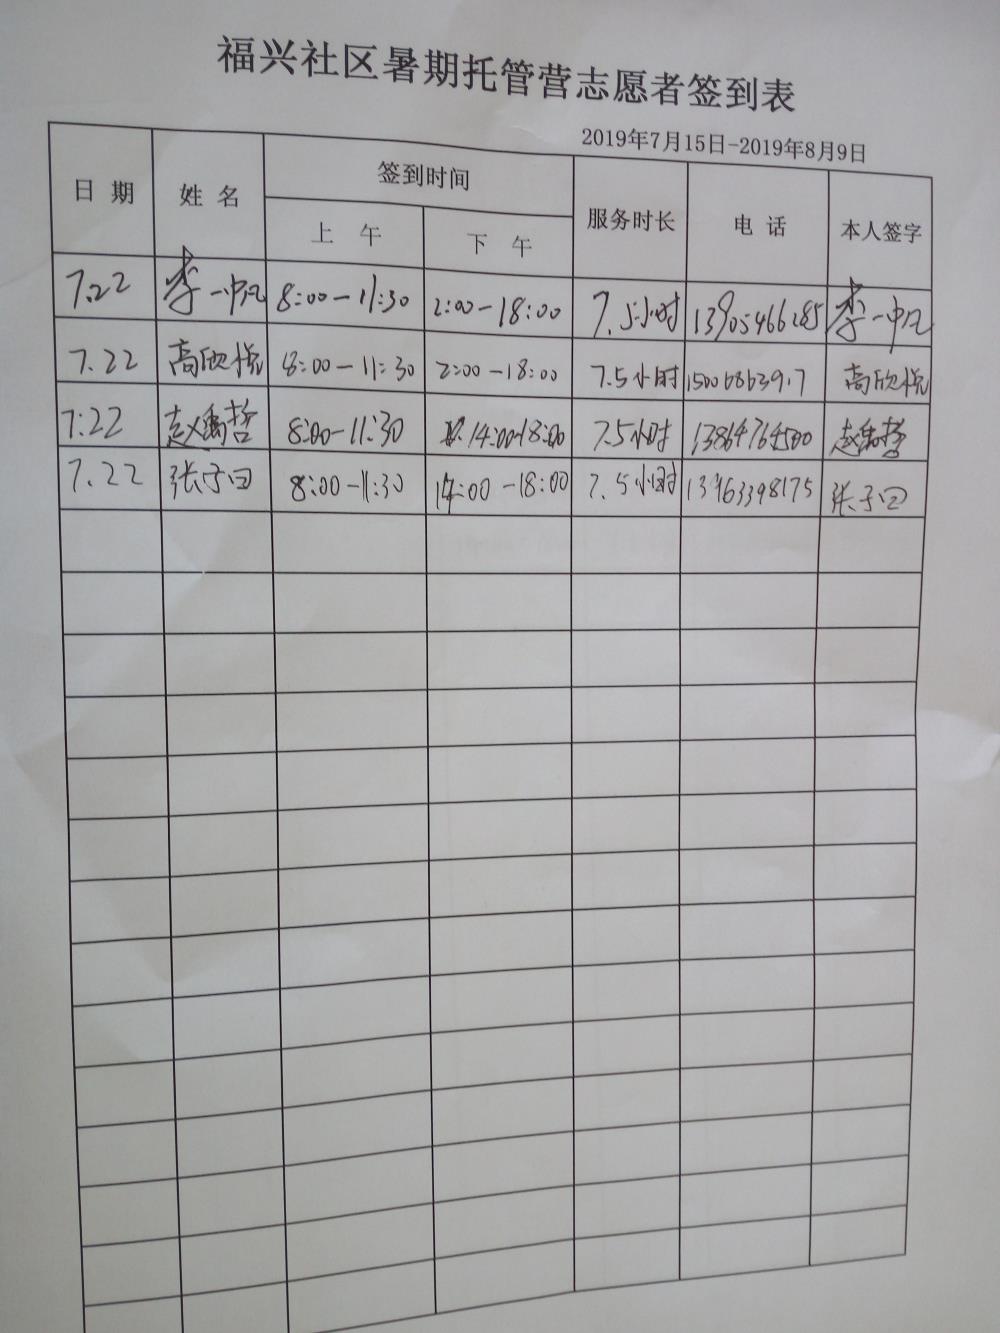 福兴社区暑期托管营志愿者签到表
2019年7月15日-2019年8月9日
日 期 姓 名 签到时间 服务时长 电 话 本人签字
上 午 下 午
7.22 李一中凡 8:00-11:30 2:00-18:00 7.5小时 李一中凡
7.22 高欣悦 8:00-11:30 2:00-18:00 7.5小时 高欣悦
7.22 赵禹哲 8:00-11:30 14:00-18:00 7.5小时 13864764500 赵禹哲
7.22 张子曰 8:00-11:30 14:00-18:00 7.5小时 13963398175 张子曰